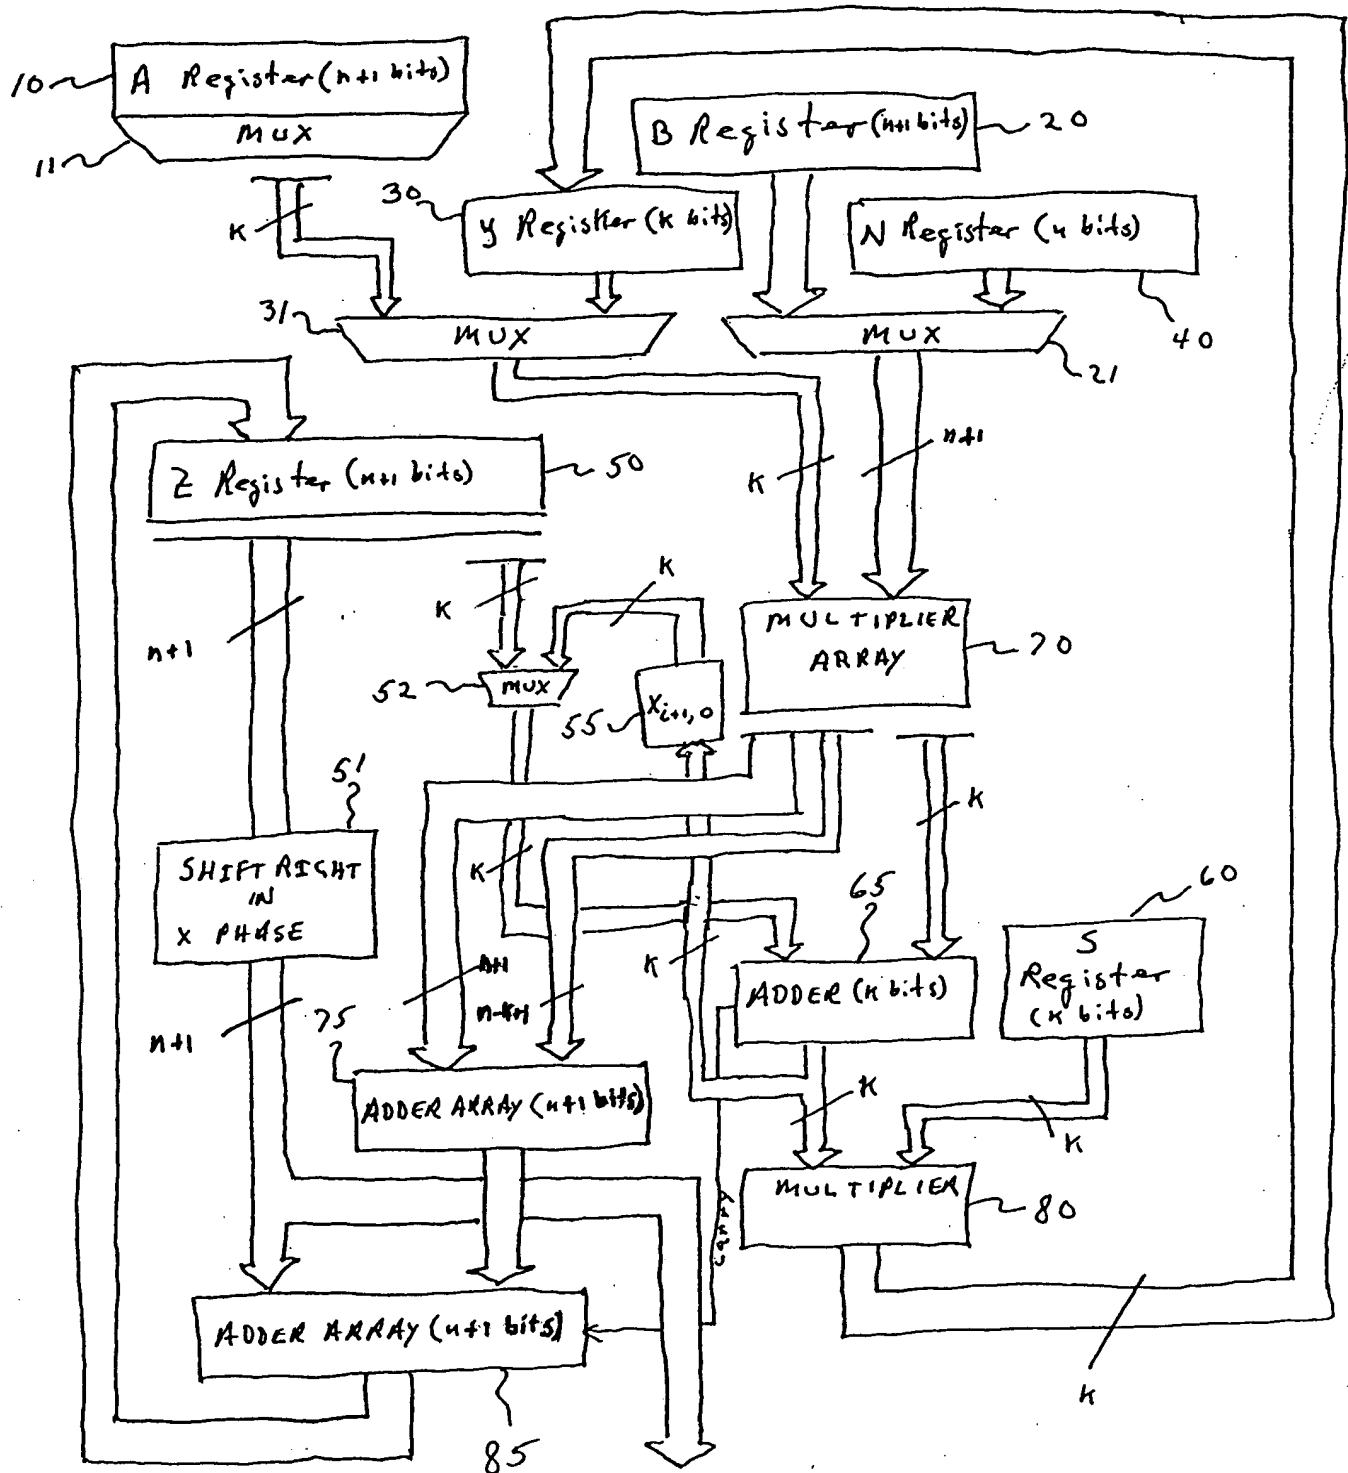 10 A Register (n+1 bits)
MUX
11
B Register (n+1 bits) 20
30
Y Register (K bits)
N Register (n bits)
40
K
31 MUX
MUX
21
Z Register (n+1 bits) 50
K
n+1
K
K
n+1
52 MUX
55 Xi+1,0
MULTIPLIER
ARRAY
70
51
SHIFT RIGHT
IN
X PHASE
K
K
65
60
S
Register
(K bits)
n+1
n+1
n-K+1
K
ADDER (K bits)
75
ADDER ARRAY (n+1 bits)
K
K
MULTIPLIER
80
CARRY
ADDER ARRAY (n+1 bits)
85
K